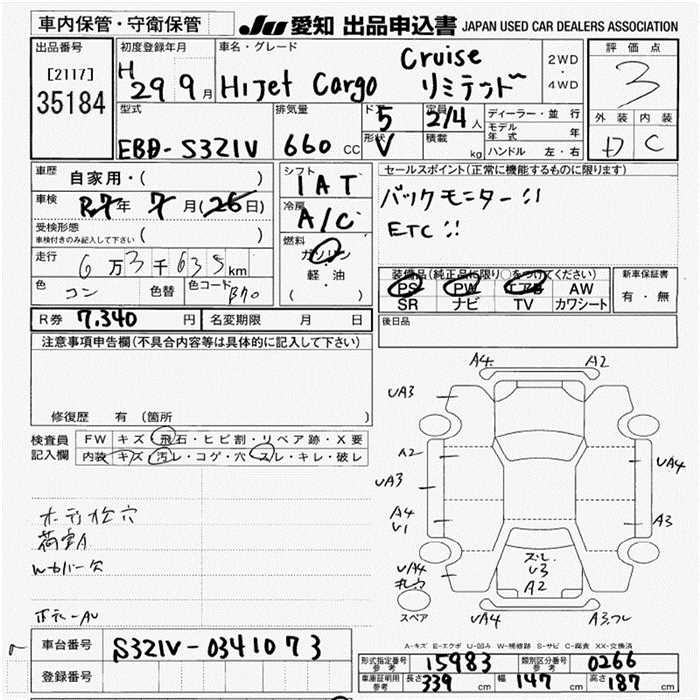 車内保管・守衛保管
JU 愛知 出品申込書 JAPAN USED CAR DEALERS ASSOCIATION
出品番号
[2117]
35184
初度登録年月
H29 9月
車名・グレード
Hijet Cargo Cruise リミテッド
2WD
・
4WD
評価点
3
外装 内装
D C
型式
EBD-S321V
排気量
660 CC
ドア
5
形状
V
定員
2/4人
積載
kg
ディーラー・並行
モデル年式 年
ハンドル 左・右
車歴 自家用・( )
車検 R7年 7月(26日)
受検形態
車検付きのみ記入して下さい ( )
走行 6万3千635km
色 コン 色替 色コード B70
シフト
IAT
冷房
A/C
燃料
ガソリン
・
軽油
( )
セールスポイント(正常に機能するものに限ります)
バックモニター!!
ETC!!
装備品(純正品に限り○をつけてください)
PS PW エアB AW
SR ナビ TV カワシート
新車保証書
有・無
R券 7,340円 名変期限 月 日
後日品
注意事項申告欄(不具合内容等は具体的に記入して下さい)
修復歴 有 (箇所
検査員記入欄
FW キズ・飛石・ヒビ割・リペア跡・X要
内装 キズ・汚レ・コゲ・穴・スレ・キレ・破レ
穴
荷室A
A4 A2
UA3
A2
UA3
UA4
A4
U1
A3
スレ
U3
A2
UA4
スペア
UA4
A-キズ E-エクボ U-凹み W-補修跡 S-サビ C-腐食 XX-交換済
車台番号 S321V-0341073
登録番号
形式指定番号 参考 15983 類別区分番号 参考 0266
車庫証明用 参考 長さ 339cm 幅 147cm 高さ 187cm